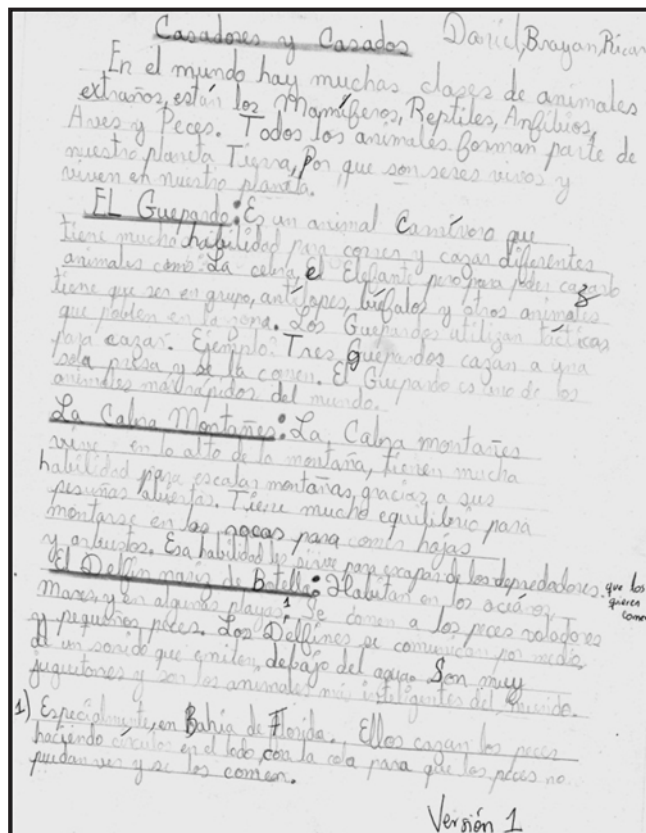 Casadores y Casados Daniel, Brayan, Ricar
En el mundo hay muchas clases de animales
extraños, están los Mamíferos, Reptiles, Anfibios,
Aves y Peces. Todos los animales forman parte de
nuestro planeta Tierra, Por que son seres vivos y
viven en nuestro planeta.
EL Guepardo: Es un animal Carnívoro que
tiene mucha habilidad para correr y cazar diferentes
animales como: La cebra, el Elefante pero para poder cazarlo
tiene que ser en grupo, antílopes, búfalos y otros animales
que poblen en la zona. Los Guepardos utilizan tácticas
para cazar. Ejemplo: Tres guepardos cazan a una
sola presa y se la comen. El Guepardo es uno de los
animales más rápidos del mundo.
La Cabra Montañes: La Cabra montañes
vive en lo alto de la montaña, tienen mucha
habilidad para escalar montañas, gracias a sus
pesuñas abiertas. Tiene mucho equilibrio para
montarse en las rocas para comer hojas
y arbustos. Esa habilidad les sirve para escapar de los depredadores. que los quieren comer
El Delfín nariz de Botella: Habitan en los océanos,
Mares, y en algunas playas¹, Se comen a los peces voladores
y pequeños peces. Los Delfines se comunican por medio,
de un sonido que emiten, debajo del agua. Son muy
juguetones y son los animales más inteligentes del mundo.
1) Especialmente, en Bahía de Florida. Ellos cazan los peces
haciendo círculos en el lodo, con la cola para que los peces no
puedan ver y se los comen.
Versión 1